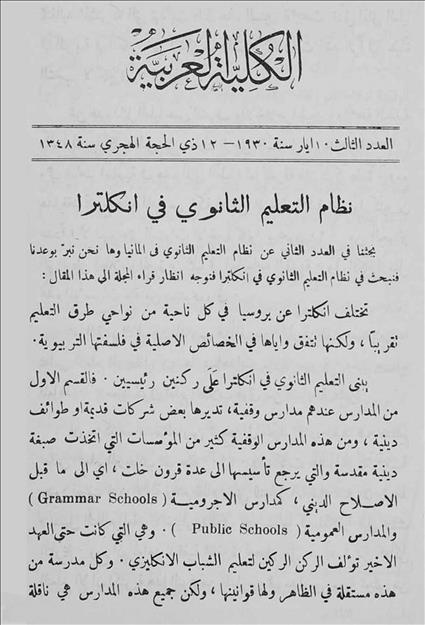 الكلية العربية
العدد الثالث ١٠ ايار سنة ١٩٣٠ – ١٢ ذي الحجة الهجري سنة ١٣٤٨
نظام التعليم الثانوي في انكلترا
بحثنا في العدد الثاني عن نظام التعليم الثانوى فى المانيا وها نحن نبرّ بوعدنا
فنبحث في نظام التعليم الثانوي في إنكلترا فنوجه انظار قراء المجلة الى هذا المقال :
تختلف انكلترا عن بروسيا في كل ناحية من نواحي طرق التعليم
تقريبًا ، ولكنها تتفق واياها في الخصائص الاصلية في فلسفتها التربيوية .
يبنى التعليم الثانوي في انكلترا عَلَى ركنين رئيسيين . فالقسم الاول
من المدارس عندهم مدارس وقفية ، تديرها بعض شركات قديمة او طوائف
دينية ، ومن هذه المدارس الوقفية كثير من المؤسسات التي اتخذت صبغة
دينية مقدسة والتي يرجع تأسيسها الى عدة قرون خلت ، اي الى ما قبل
الاصلاح الديني ، كمدارس الاجرومية ( Grammar Schools )
والمدارس العمومية ( Public Schools ) . وهي التي كانت حتى العهد
الاخير تؤلف الركن الركين لتعليم الشباب الانكليزي . وكل مدرسة من
هذه مستقلة في الظاهر ولها قوانينها ، ولكن جميع هذه المدارس هي ناقلة